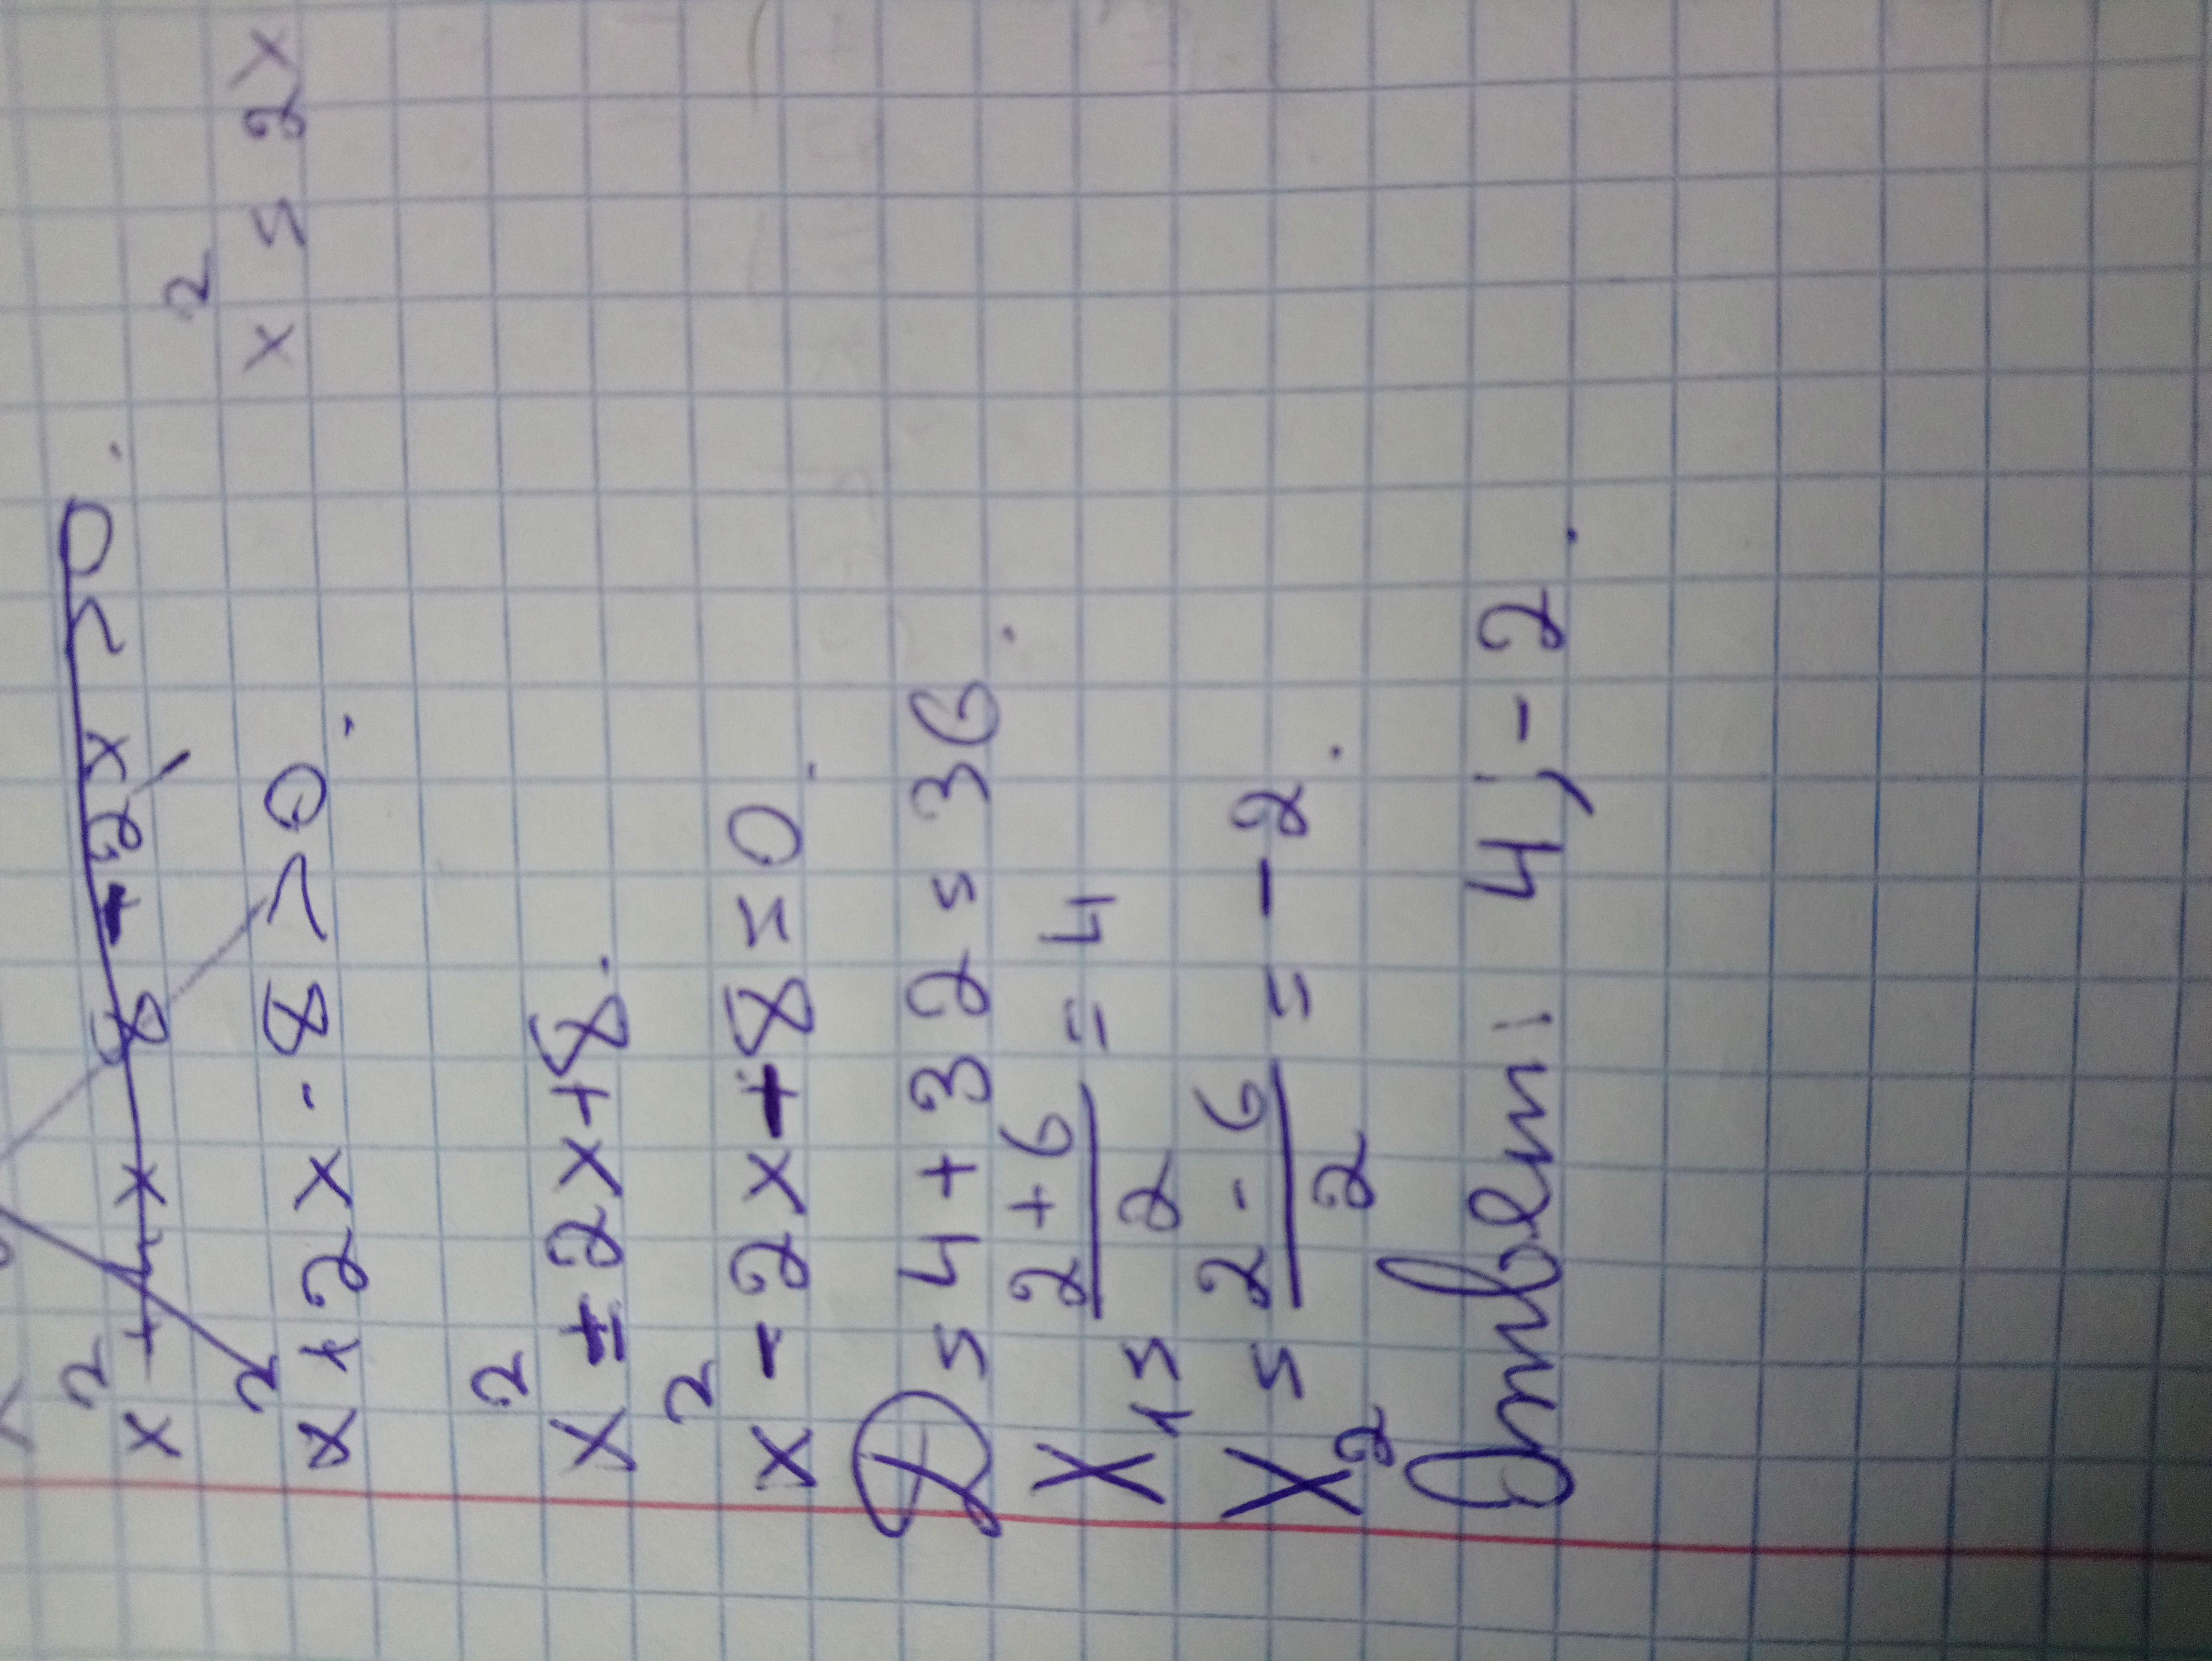 x² + 4x 8 + 2x > 0.
x² = 2x
x² + 2x - 8 > 0.
x² = 2x + 8.
x² - 2x + 8 = 0.
D = 4 + 32 = 36.
x₁ = (2 + 6)/2 = 4
x₂ = (2 - 6)/2 = -2.
Ответ: 4; -2.